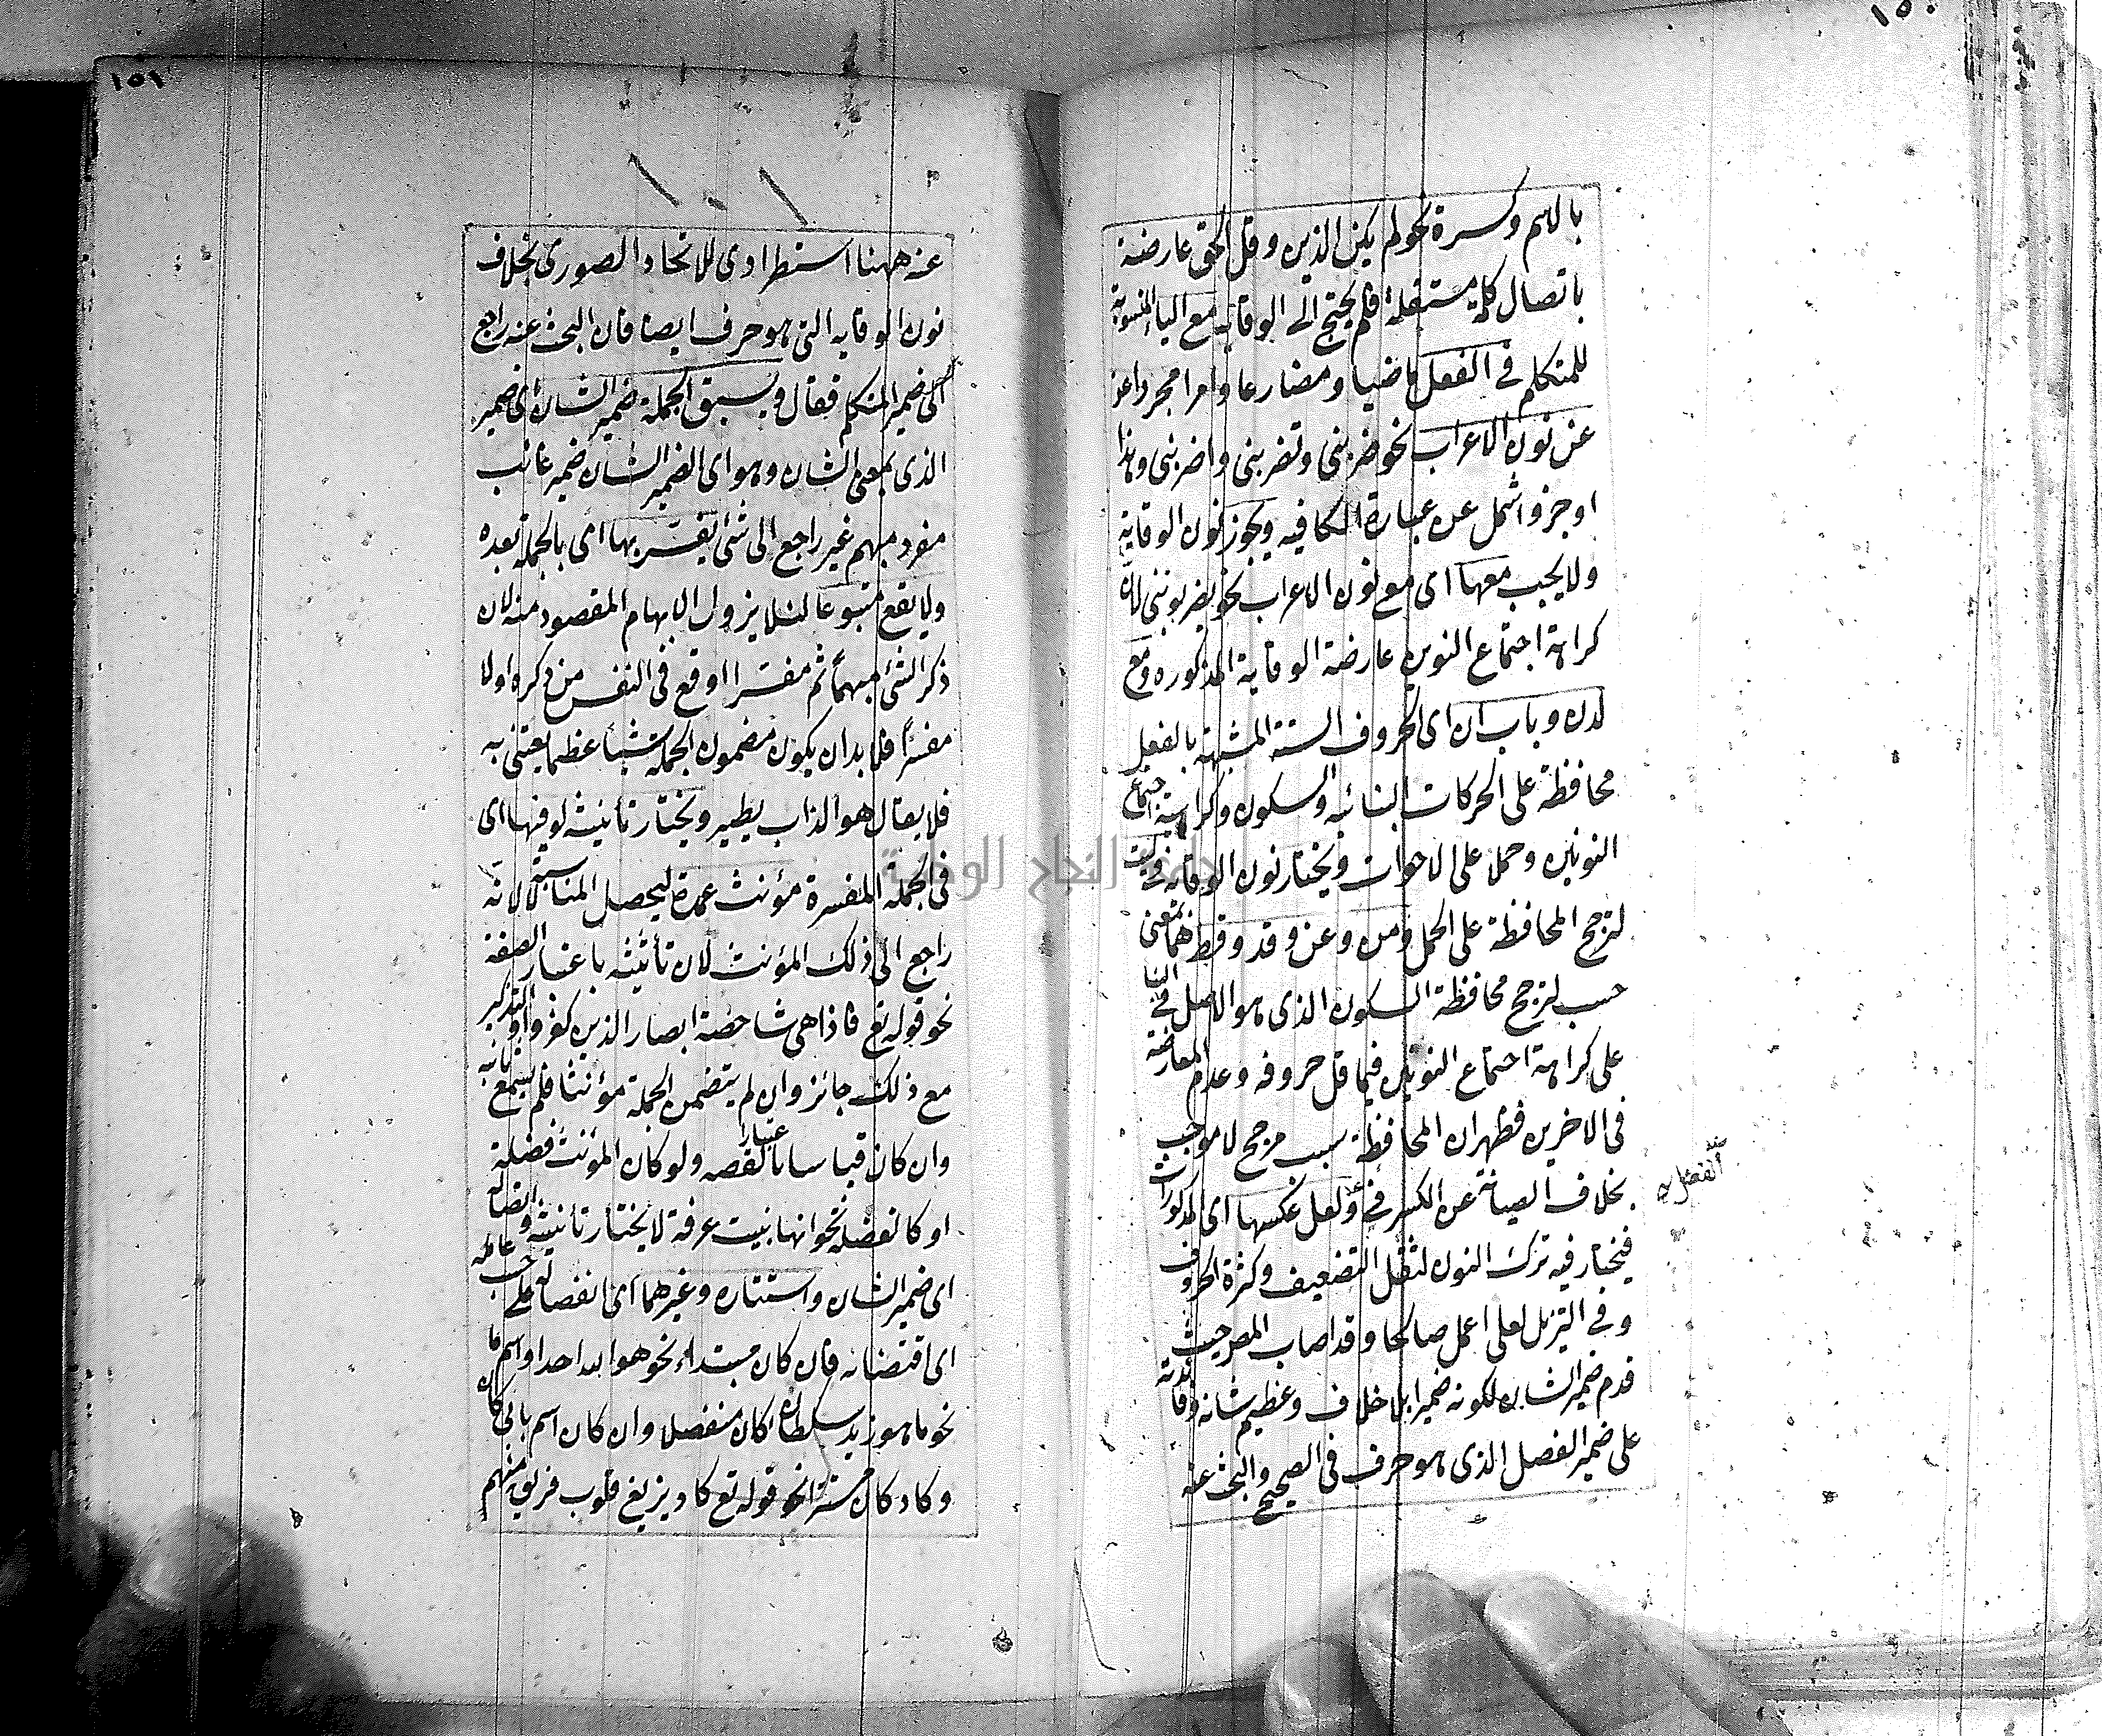 ١٥٠
بالاسم وكسرة نحو لم يكن الذين وقل الحق عارضة
باتصال كلمة مستقلة فلم يحتج الى الوقاية مع الياء
للمتكلم في الفعل ماضيا ومضارعا وامرا مجردا عن
عن نون الاعراب نحو ضربني وتضربني واضربني وهذا
اوجز واشمل عن عبارة الكافيه ويجوز نون الوقاية
ولا يجب معها اى مع نون الاعراب نحو يضربونني لان
كراهة اجتماع النونين عارضة الوقاية المذكوره ومع
لدن وباب ان اى الحروف الستة المشبهة بالفعل
محافظة على الحركات البنائيه والسكون وكراهية اجتماع
النونين وحملا على الاخوات ويختار نون الوقاية في ليت
لترجح المحافظة على الحمل ومن وعن وقد وقط هما بمعنى
حسب لترجح محافظة السكون الذى هو الاصل في البنا
على كراهة اجتماع النونين فيما قل حروفه وعدم المعارضة
فى الاخرين فظهر ان المحافظة سبب مرجح لا موجب
بخلاف الصيانة عن الكسر في ولعل عكسها اى المذكورات
فيختار فيه ترك النون لثقل التضعيف وكثرة الحروف
وفى التنزيل لعلى اعمل صالحا وقد اصاب المصر حيث
قدم ضمير الشان لكونه ضميرا بلا خلاف وعظيم شانه وفائدته
على ضمير الفصل الذى هو حرف فى الصحيح والبحث عنه
الفصل
١٥١
عنه ههنا استطرادى للاتحاد الصورى بخلاف
نون الوقايه التى هو حرف ايضا فان البحث عنه راجع
الى ضمير المتكلم فقال ويسبق الجملة ضمير الشان اى ضمير
الذى بمعنى الشان وهو اى الضمير الشان ضمير غائب
مفرد مبهم غير راجع الى شئ يفسر بها اى بالجملة بعده
ولا يقع متبوعا لئلا يزول الابهام المقصود منه لان
ذكر الشئ مبهماً ثم مفسرا اوقع فى النفس من ذكره اولا
مفسراً فلا بد ان يكون مضمون الجملة شيئا عظيما يعتنى به
فلا يقال هو الذاب يطير ويختار تأنيثه لو فيها اى
فى الجملة المفسرة مؤنث عمدة ليحصل المناسبة لا لانه
راجع الى ذلك المؤنث لان تأنيثه باعتبار الصفة
نحو قوله تع فاذا هى شاخصة ابصار الذين كفروا والتذكير
مع ذلك جائز وان لم يتضمن الجملة مؤنثا فلم يسمع تانيه
وان كان قياسا باعتبار القصه ولو كان المؤنث فضلة
او كالفضلة نحو انها بنيت غرفة لا يختار تأنيثه وايضا
اى ضمير الشان واستتاره وغيرهما اى انفصاله على حسب عامله
اى اقتضائه فان كان مبتداء نحو هو الله احد او اسم ما
نحو ما هو زيد سلطان كان منفصلا وان كان اسم بابى كان
وكاد كان مستترا نحو قوله تع كاد يزيغ قلوب فريق منهم